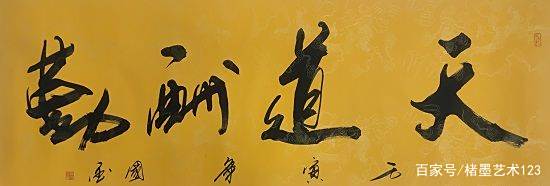 天道酬勤
壬寅年國
百家号/楮墨艺术123